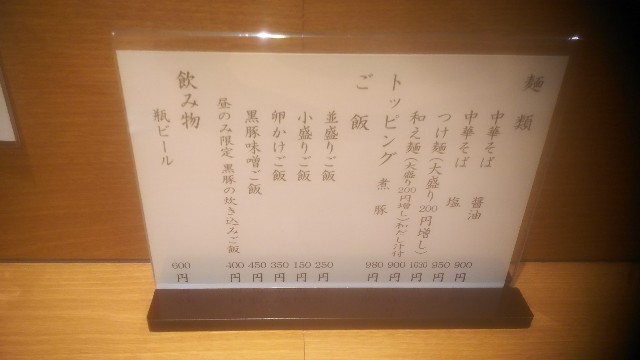 麺類
中華そば 醤油 900円
中華そば 塩 950円
つけ麺(大盛り200円増し) 円
和え麺(大盛り200円増し)和だし汁付 900円
トッピング 煮豚 円
ご飯
並盛りご飯 250円
小盛りご飯 150円
卵かけご飯 350円
黒豚味噌ご飯 450円
昼のみ限定 黒豚の炊き込みご飯 400円
飲み物
瓶ビール 600円